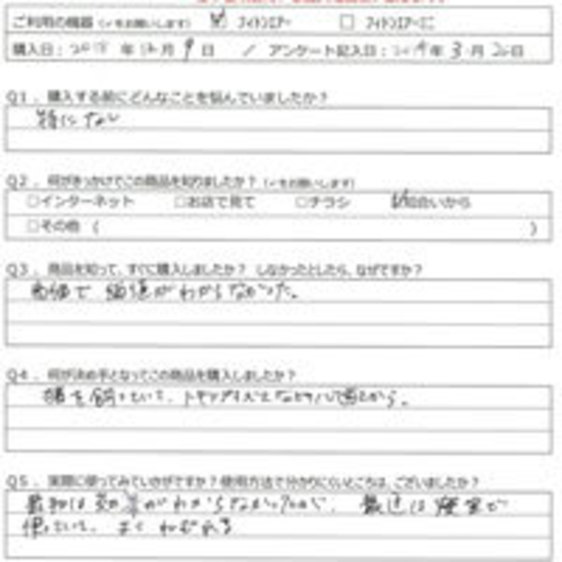 ご利用の機器（✓をお願いします） ☑ フィトンエアー □ フィトンエアーミニ
購入日：2018年12月9日 ／ アンケート記入日：2019年3月20日
Q1．購入する前にどんなことを悩んでいましたか？
特になし
Q2．何がきっかけでこの商品を知りましたか？（✓をお願いします）
□インターネット □お店で見て □チラシ ☑知り合いから
□その他（ ）
Q3．商品を知って、すぐに購入しましたか？ しなかったとしたら、なぜですか？
高価で 価値がわからなかった。
Q4．何が決め手となってこの商品を購入しましたか？
猫を飼っていて、
から。
Q5．実際に使ってみていかがですか？使用方法で分かりにくいところは、ございましたか？
最初は効果がわからなかったが、最近は寝室で
使っていて、よくねむれる